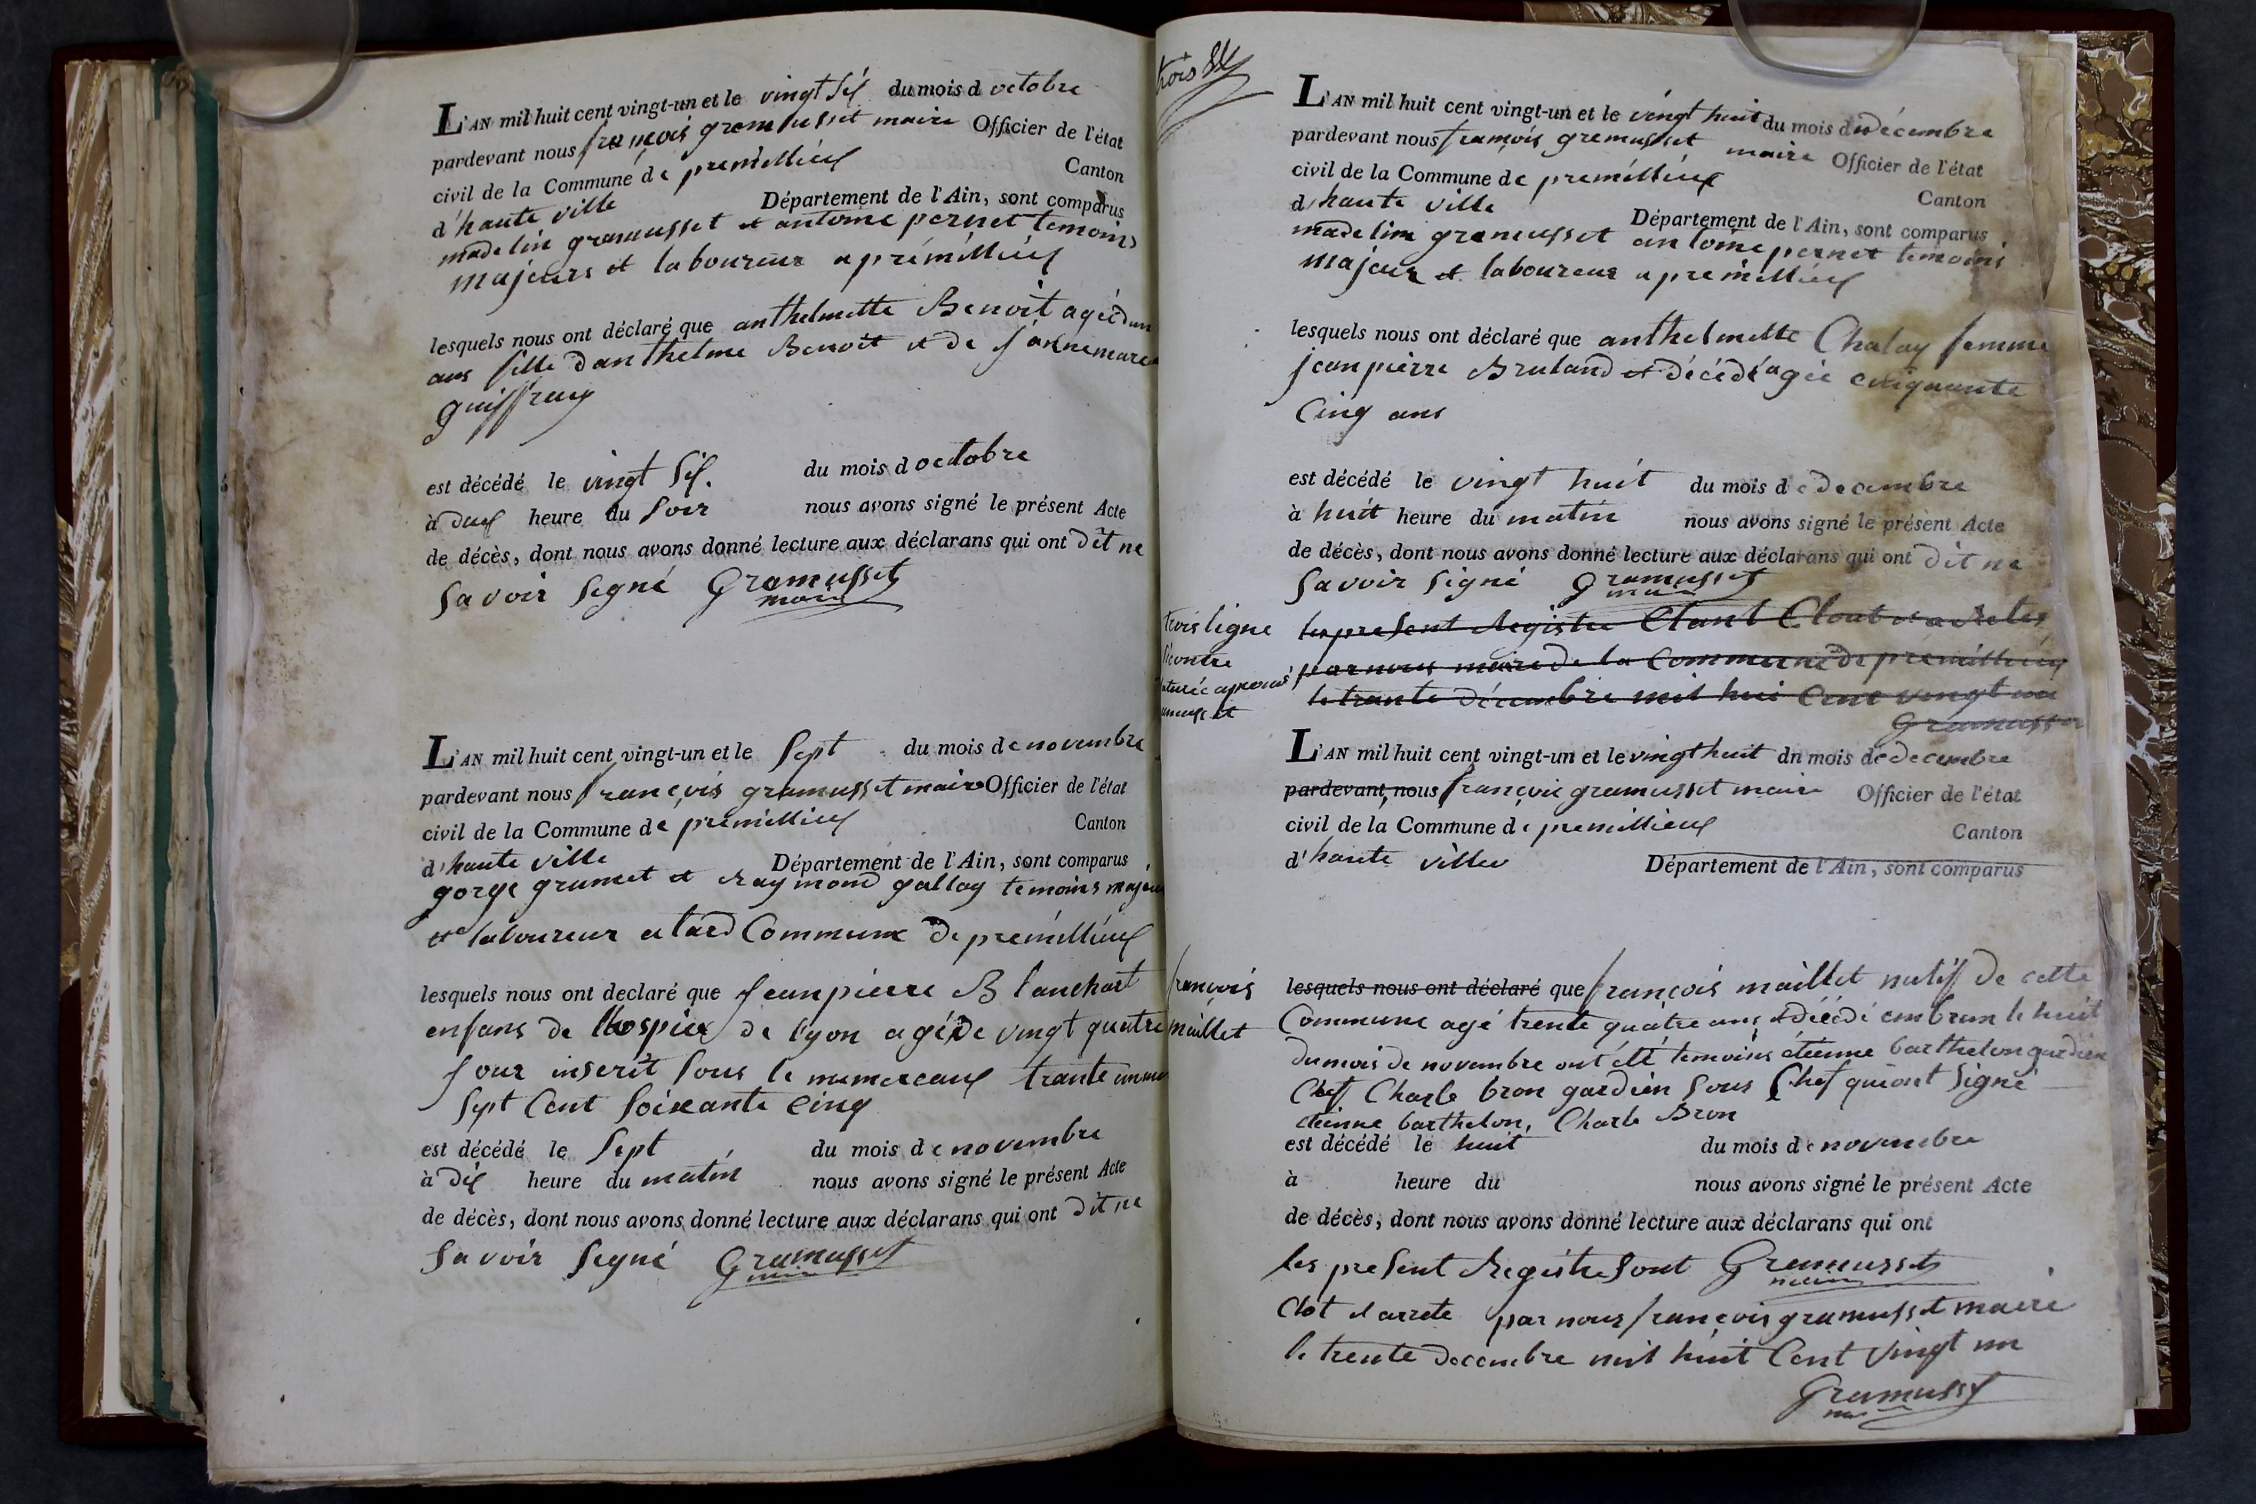 L'AN mil huit cent vingt-un et le vingt six du mois d octobre
pardevant nous françois gramusset maire Officier de l'état
civil de la Commune de premillieux Canton
d'haute ville Département de l'Ain, sont comparus
madelin gramusset et antoine pernet temoins
majeurs et laboureur a prémillieux
lesquels nous ont déclaré que anthelmette Benoit agée dun
ans fille d'anthelme Benoit et de jannemarie
guiffray
est décédé le vingt six. du mois d octobre
à deux heure du soir nous avons signé le présent Acte
de décès, dont nous avons donné lecture aux déclarans qui ont dit ne
savoir segné Gramusset
maire
L'AN mil huit cent vingt-un et le sept du mois de novembre
pardevant nous françois gramusset maire Officier de l'état
civil de la Commune de premillieux Canton
d'haute ville Département de l'Ain, sont comparus
gorge grumet et Raymond gallay temoins majeur
et laboureur Commune de prémillieux
lesquels nous ont declaré que jeanpierre Blanchart
enfans de lhospice de lyon agé de vingt quatre
jour inserit sous le numereaux trante un
sept Cent soixante Cinq
est décédé le sept du mois de novembre
à dix heure du matin nous avons signé le présent Acte
de décès, dont nous avons donné lecture aux déclarans qui ont dit ne
savoir segné Gramusset
maire
trois
L'AN mil huit cent vingt-un et le vingt huit du mois de décembre
pardevant nous françois gramusset maire Officier de l'état
civil de la Commune de premillieux Canton
d haute ville Département de l'Ain, sont comparus
madelin gramusset antoine pernet temoins
majeur et laboureur a premillieux
lesquels nous ont déclaré que anthelmette Chalay femme
jeanpierre Bruland et décédé agée cinquante
Cinq ans
est décédé le vingt huit du mois de decembre
à huit heure du matin nous avons signé le présent Acte
de décès, dont nous avons donné lecture aux déclarans qui ont dit ne
savoir signé Gramusset
maire
trois ligne
les present Registre Etant Clout et arretes
par nous maire de la Commune de prémillieux
le trante décembre mil hui Cent vingt un
Gramusset
L'AN mil huit cent vingt-un et le vingt huit dn mois de decembre
pardevant, nous françois gramusset maire Officier de l'état
civil de la Commune de premillieux Canton
d'haute ville Département de l'Ain, sont comparus
françois
maillet
lesquels nous ont déclaré que françois maillet natif de cette
Commune agé trente quatre ans et décédé embrun le huit
du mois de novembre ont été temoins étienne barthelon gardien
Chef Charle bron gardien sous Chef qui ont signé
étienne barthelon, Charle Bron
est décédé le huit du mois de novembre
à heure du nous avons signé le présent Acte
de décès, dont nous avons donné lecture aux déclarans qui ont
les present Registre sont Gramusset
maire
Clot et arrete par nous françois gramusset maire
le trente decembre mil huit Cent vingt un
Gramusset